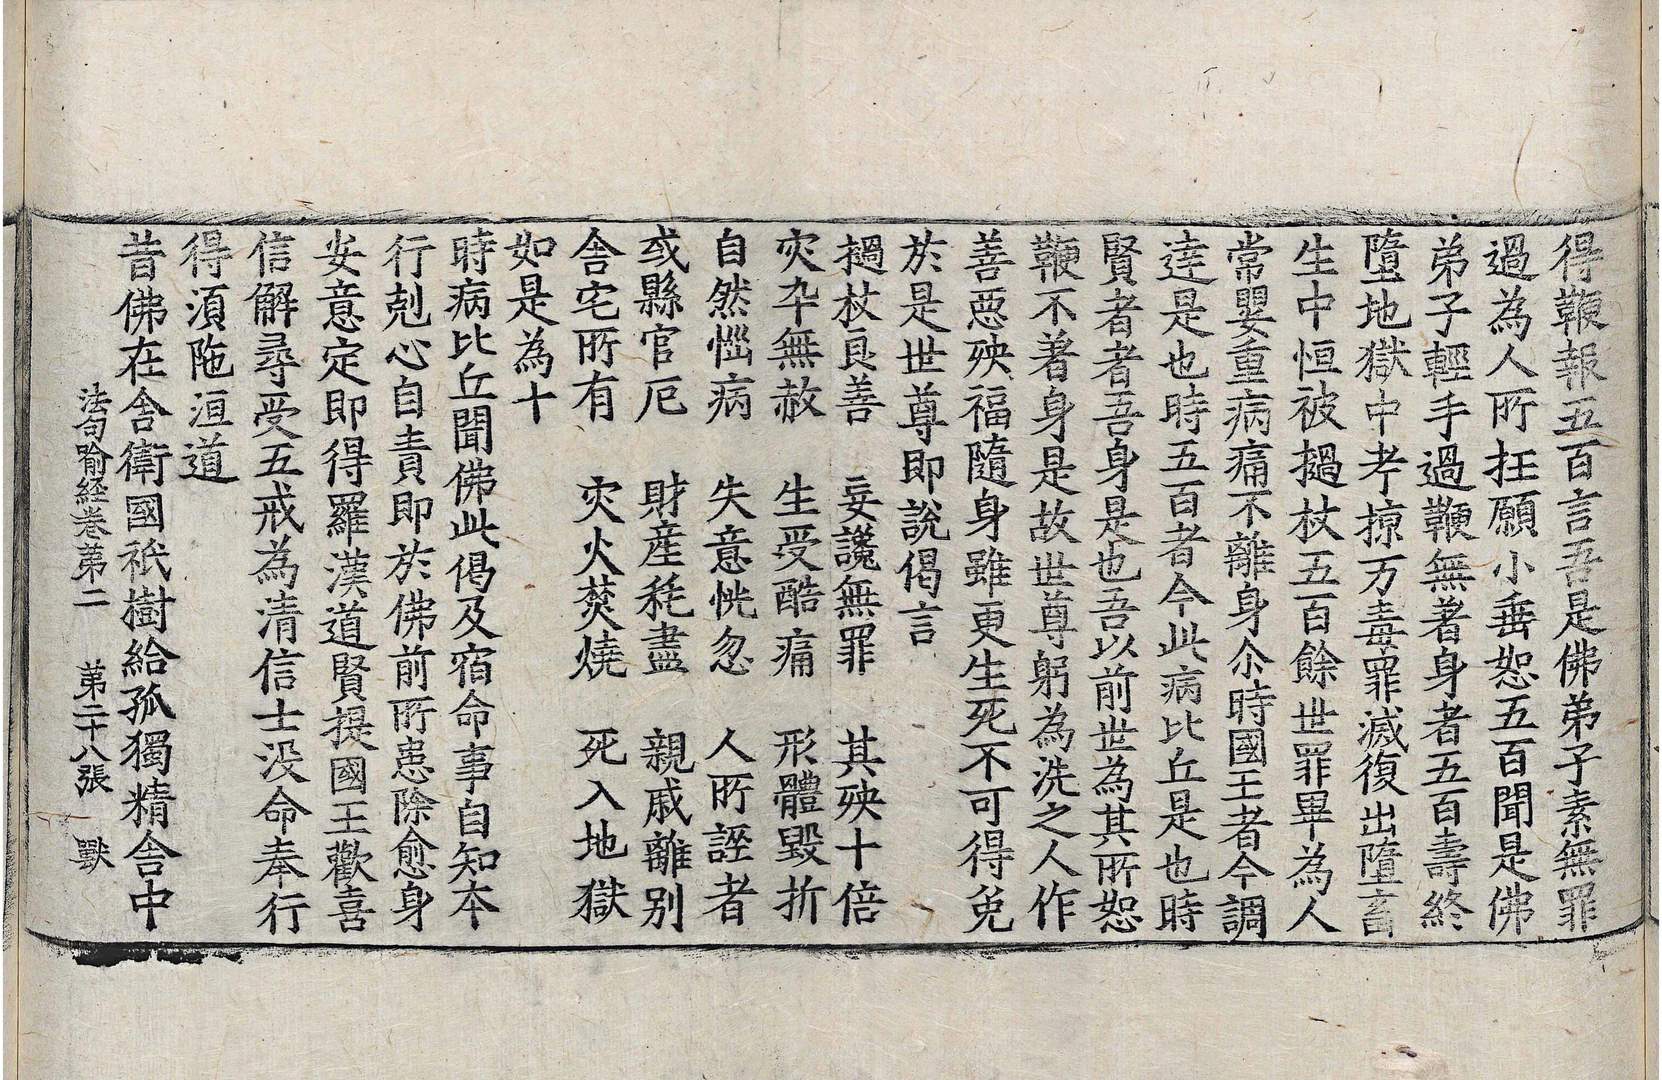 得鞭報五百言吾是佛弟子素無罪
過為人所抂願小垂恕五百聞是佛
弟子輕手過鞭無著身者五百壽終
墮地獄中考掠万毒罪滅復出墮畜
生中恒被撾杖五百餘世罪畢為人
常嬰重病痛不離身尒時國王者今調
達是也時五百者今此病比丘是也時
賢者者吾身是也吾以前世為其所恕
鞭不著身是故世尊躬為洗之人作
善惡殃福隨身雖更生死不可得免
於是世尊即說偈言
撾杖良善　妄讒無罪　其殃十倍
灾卒無赦　生受酷痛　形體毀折
自然惱病　失意恍忽　人所誣者
或縣官厄　財産耗盡　親戚離別
舍宅所有　灾火焚燒　死入地獄
如是為十
時病比丘聞佛此偈及宿命事自知本
行剋心自責即於佛前所患除愈身
安意定即得羅漢道賢提國王歡喜
信解尋受五戒為清信士没命奉行
得須陁洹道
法句喻経卷第二　第二十八張　獸
昔佛在舍衛國祇樹給孤獨精舍中